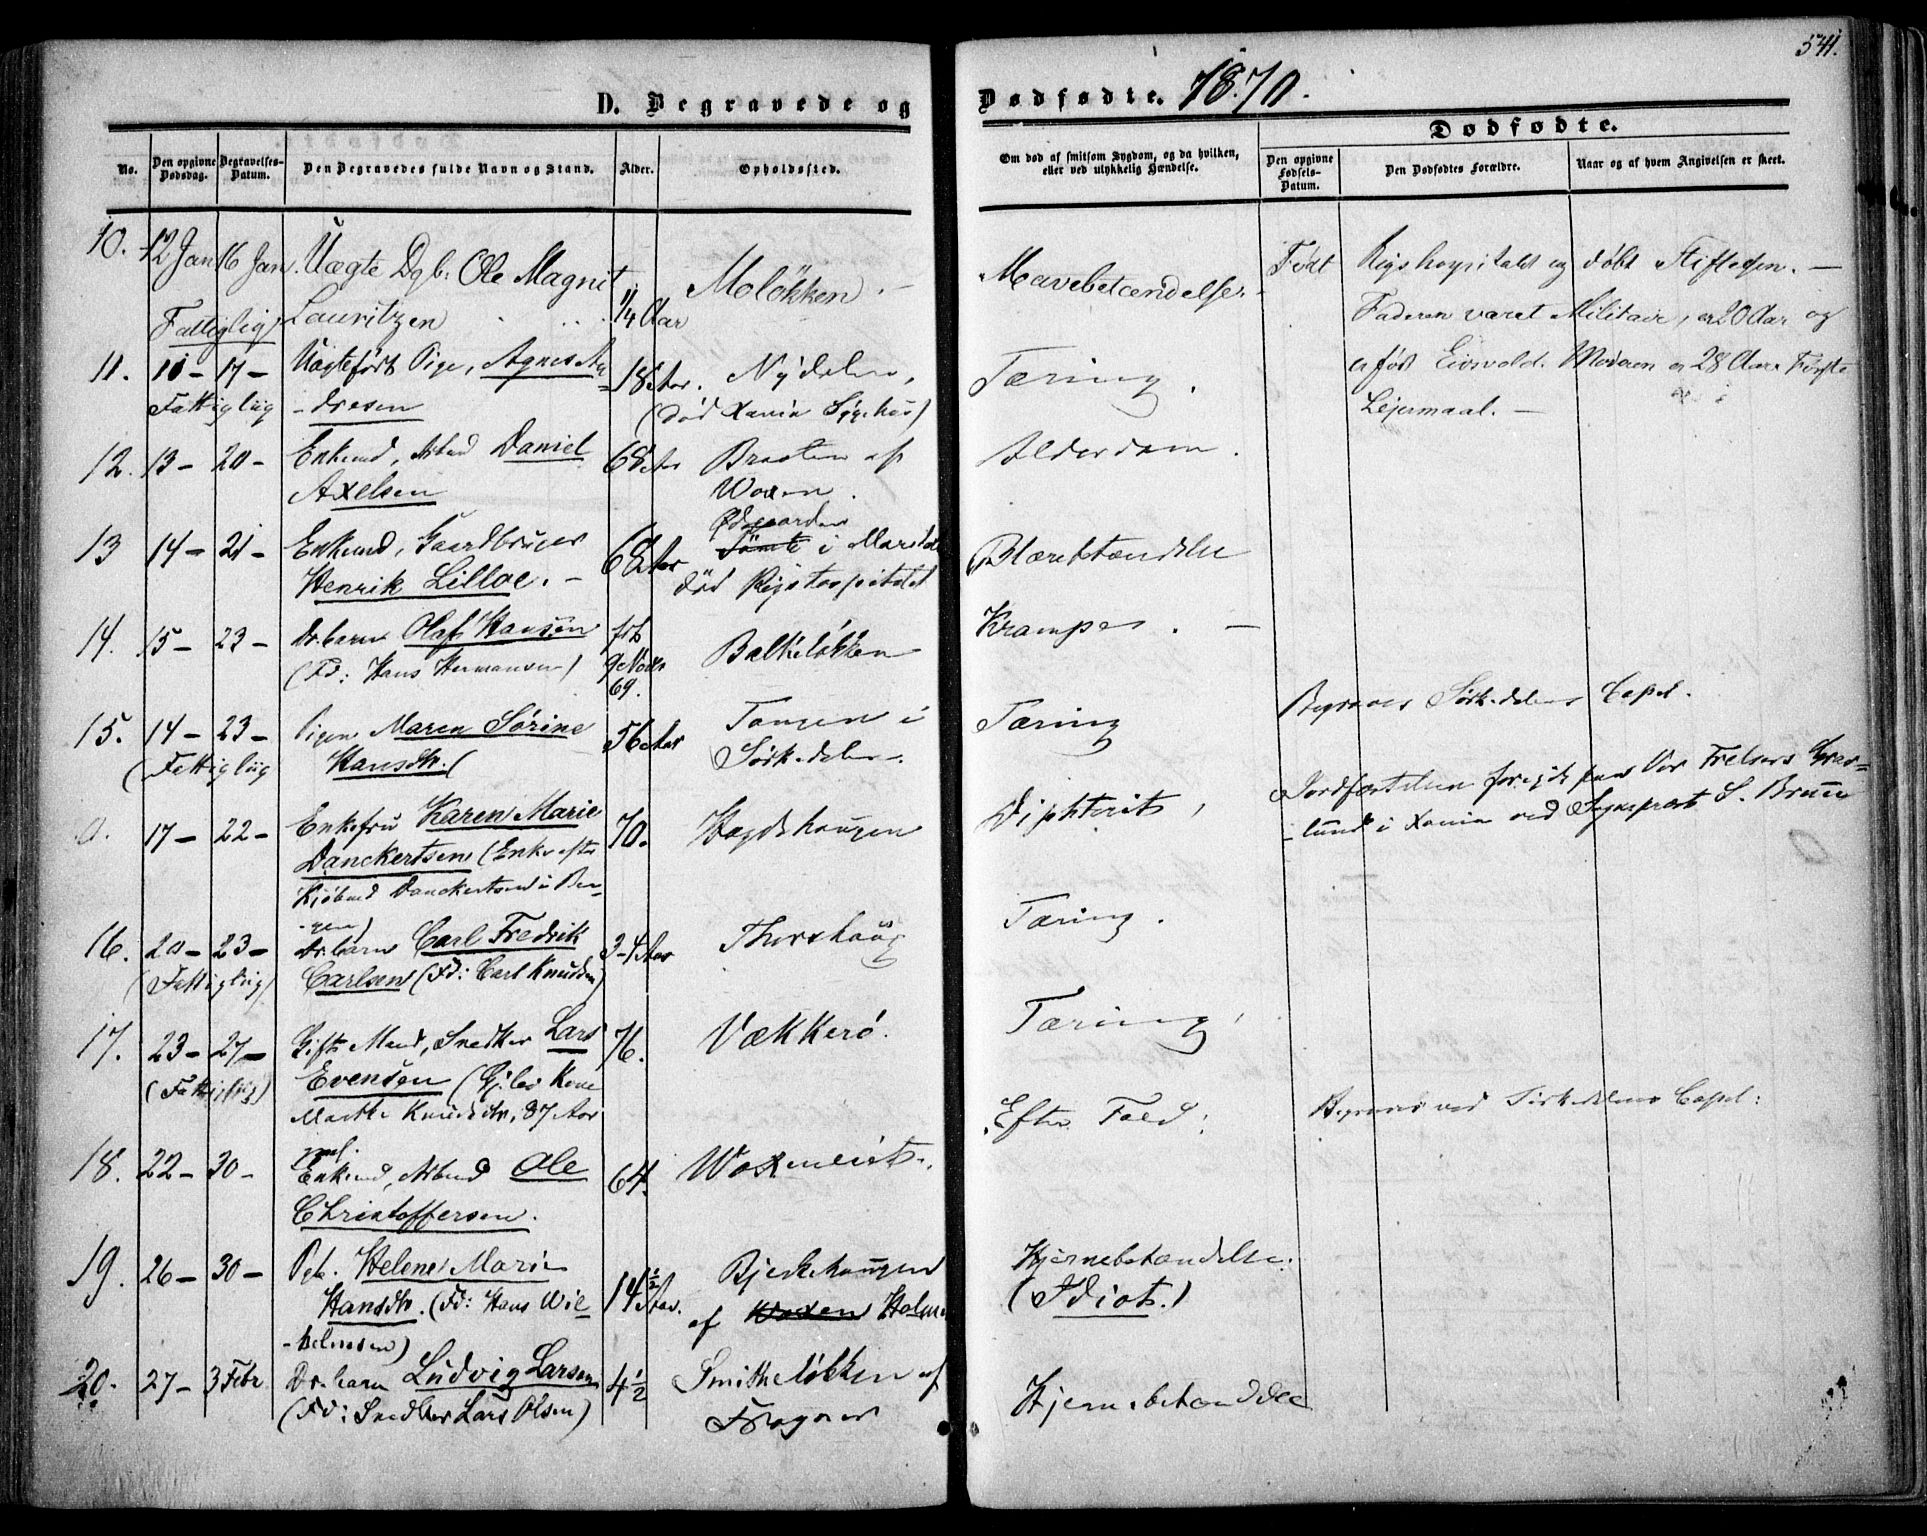 541.
D. Begravede og Dødfødte. 1870.
Dødfødte.
No.
Den opgivne Dødsdag.
Begravelses-Datum.
Den Begravedes fulde Navn og Stand.
Alder.
Opholdssted.
Om død af smitsom Sygdom, og da hvilken,
eller ved ulykkelig Hændelse.
Den opgivne Fødsels-Datum.
Den Dødfødtes Forældre.
Naar og af hvem Angivelsen er skeet.
10. 12 Jan 16 Jan. Uægte Dgb. Ole Magnit
Lauritzen
Fattiglig
1 1/4 Aar
Moløkken.
Mavebetændelse.
Født Rigshospitalet og døbt Stiftelsen. —
Faderen været Militair, er 20 Aar og
er født Eidsvold. Moderen er 28 Aar. Første
Lejermaal. —
11. 11 - 17 - Uægtefødt Pige, Agnes An=
-dresen
Fattigliig
18 Aar. Nydalen,
(død Xania Sygehus)
Tæring.
12. 13 - 20 - Enkemd, Arbmd Daniel
Axelsen
68 Aar Braaten af
Woxen.
Alderdom.
13 14 - 21 - Enkemd, Gaardbruger
Henrik Lilloe. —
68 Aar Ødegaarden
Tømte i
død Rigshospitalet
Blærebetændelse
14. 15 - 23 - Dr.barn Olaf Hansen
(Fd: Hans Hermansen)
fdt
9 Novbr
69.
Balkeløkken
Krampe. —
15. 14 - 23 - Pigen Maren Sørine
Hansdtr.
(Fattigliig
56 Aar Tangen i
Sørkedalen.
Tæring
Begraves Sørkedalens Capel.
a. 17 - 22 - Enkefru Karen Marie
Danckertsen (Enke efter
Kjøbmd Danckertsen i Ber=
-gen)
70. Hagdehaugen
Diphterit,
Jordfæstelsen foregik paa Vor Frelsers Grav=
-lund i Xania ved Sognepræst S. Bruun
16. 20 - 23 - Dr.barn Carl Fredrik
Carlsen (Fd: Carl Knudsen)
(Fattigliig)
3-4 Aar Thorshaug
Tæring.
17. 23 - 27 - Gift Mand, Snedker Lars
Evensen (Gjlev Kone
Marthe Knudsdtr, 87 Aar
gml.
(Fattiglig)
76. Vækkerø.
Tæring,
18. 22 - 30 - Enkemd, Arbmd Ole
Christoffersen.
64. Woxen
Efter Fald.
Begraves ved Sørkedalens Capel.
19. 26 - 30 - Pgb. Helene Marie
Hansdtr. (Fd: Hans Wil=
-helmsen)
14 1/2 Aar. Bjerkehaugen
af Woxen Holmen
Hjernebetændelse.
(Idiot.)
20. 27 - 3 Febr Dr.barn Ludvig Larsen
(Fd: Snedker Lars Olsen)
4 1/2 Smitheløkken af
Frogner
Hjernebetændelse